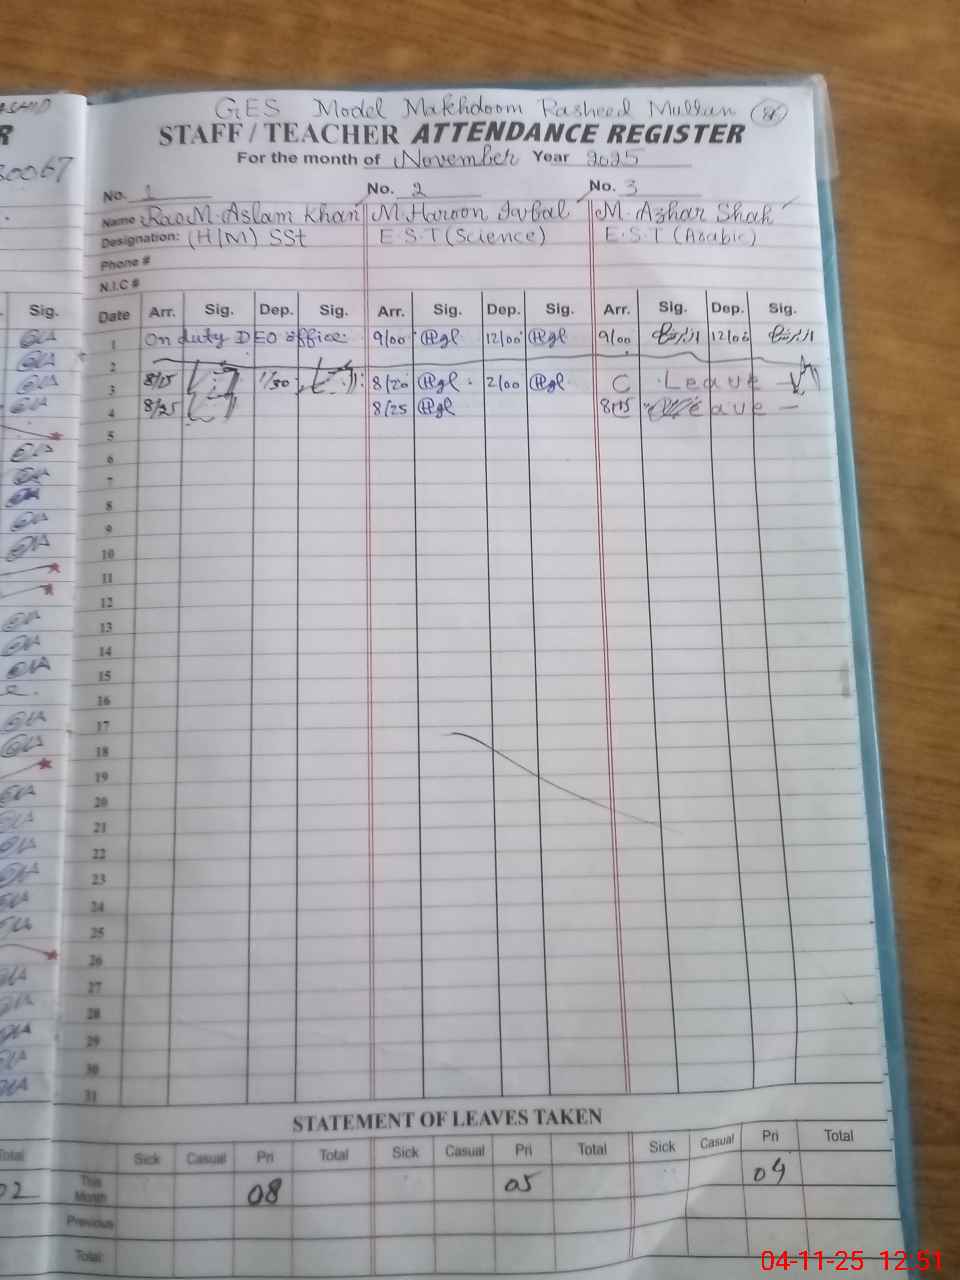 GES Model Makhdoom Rasheed Multan 86
STAFF / TEACHER ATTENDANCE REGISTER
For the month of November Year 2025
No. 1 No. 2 No. 3
Name : Rao M. Aslam Khan M. Haroon Iqbal M. Azhar Shah
Designation: (H/M) SSt E.S.T (Science) E.S.T (Arabic)
Phone #
N.I.C #
Sig. Date Arr. Sig. Dep. Sig. Arr. Sig. Dep. Sig. Arr. Sig. Dep. Sig.
1 On duty DEO office. 9/00 12/00 9/00 12/00
2
3 8/15 1/30 8/20 2/00 C Leave
4 8/25 8/25 8/15 eave
5
6
7
8
9
10
11
12
13
14
15
16
17
18
19
20
21
22
23
24
25
26
27
28
29
30
31
STATEMENT OF LEAVES TAKEN
Total Sick Casual Pri Total Sick Casual Pri Total Sick Casual Pri Total
02 This Month 08 05 04
Previous
Total
04-11-25 12:51